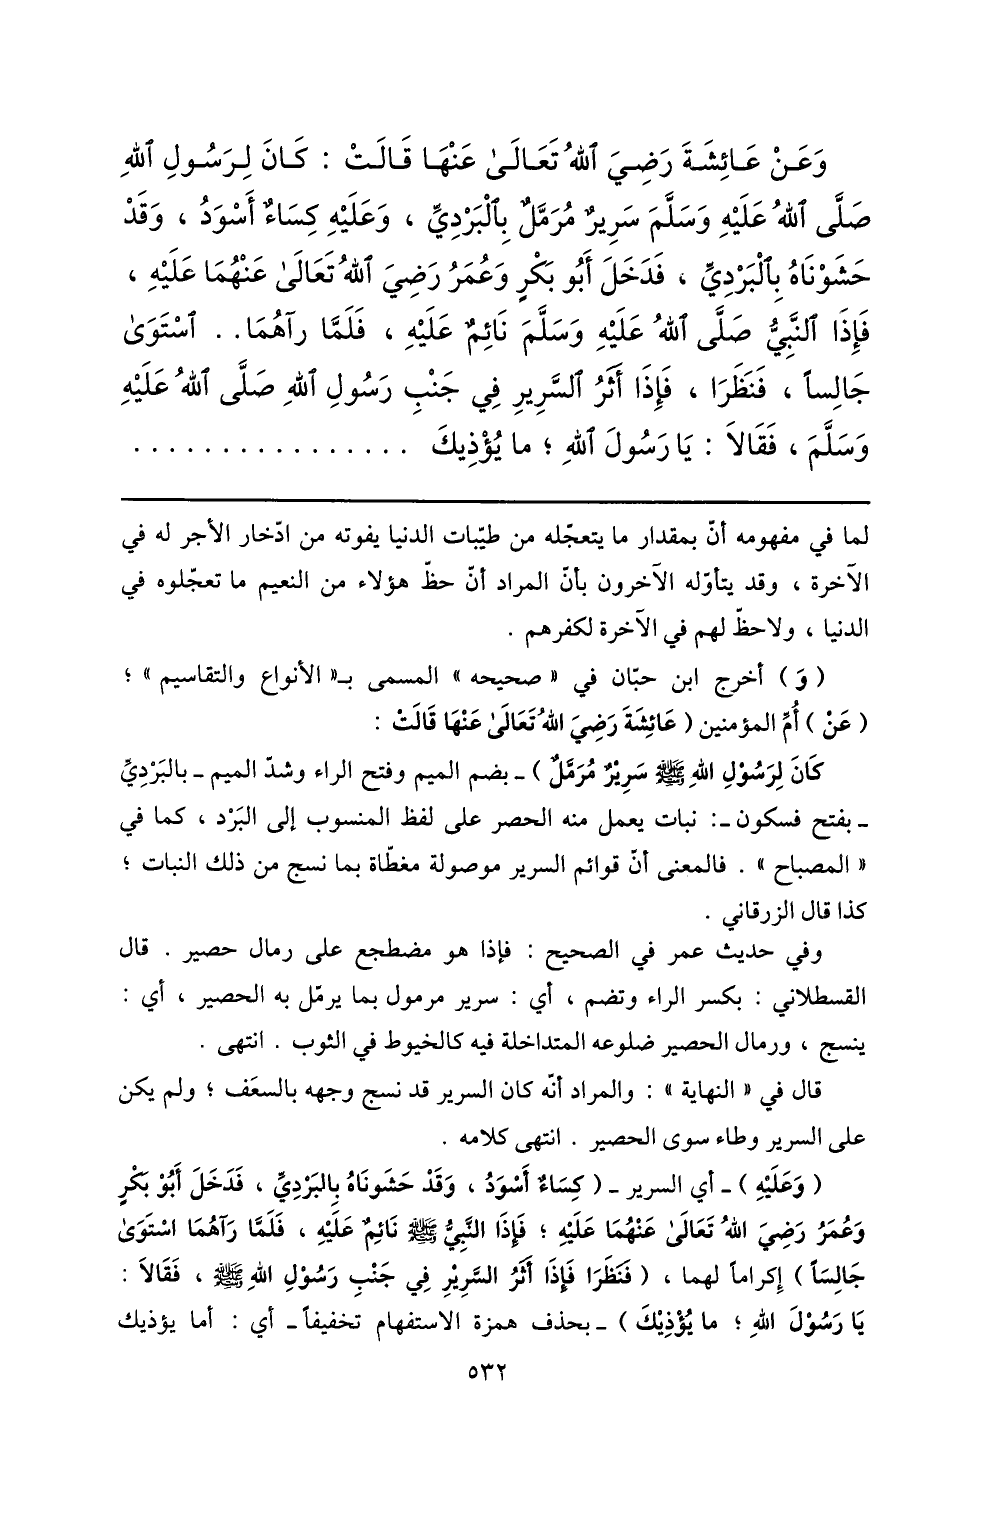 وَعَنْ عَائِشَةَ رَضِيَ ٱللهُ تَعَالَىٰ عَنْهَا قَالَتْ : كَانَ لِرَسُولِ ٱللهِ
صَلَّى ٱللهُ عَلَيْهِ وَسَلَّمَ سَرِيرٌ مُرَمَّلٌ بِٱلْبَرْدِيِّ ، وَعَلَيْهِ كِسَاءٌ أَسْوَدُ ، وَقَدْ
حَشَوْنَاهُ بِٱلْبَرْدِيِّ ، فَدَخَلَ أَبُو بَكْرٍ وَعُمَرُ رَضِيَ ٱللهُ تَعَالَىٰ عَنْهُمَا عَلَيْهِ ،
فَإِذَا ٱلنَّبِيُّ صَلَّى ٱللهُ عَلَيْهِ وَسَلَّمَ نَائِمٌ عَلَيْهِ ، فَلَمَّا رآهُمَا. . ٱسْتَوَىٰ
جَالِساً ، فَنَظَرَا ، فَإِذَا أَثَرُ ٱلسَّرِيرِ فِي جَنْبِ رَسُولِ ٱللهِ صَلَّى ٱللهُ عَلَيْهِ
وَسَلَّمَ ، فَقَالاَ : يَا رَسُولَ ٱللهِ ؛ ما يُؤْذِيكَ . . . . . . . . . . . . . . . .
لما في مفهومه أنّ بمقدار ما يتعجّله من طيّبات الدنيا يفوته من ادّخار الأجر له في
الآخرة ، وقد يتأوّله الآخرون بأنّ المراد أنّ حظّ هؤلاء من النعيم ما تعجّلوه في
الدنيا ، ولاحظّ لهم في الآخرة لكفرهم .
( وَ ) أخرج ابن حبّان في « صحيحه » المسمى بـ« الأنواع والتقاسيم » ؛
( عَنْ ) أُمِّ المؤمنين ( عَائِشَةَ رَضِيَ اللهُ تَعَالَىٰ عَنْهَا قَالَتْ :
كَانَ لِرَسُوْلِ اللهِ ﷺ سَرِيْرٌ مُرَمَّلٌ ) ـ بضم الميم وفتح الراء وشدّ الميم ـ بالبَرْدِيِّ
ـ بفتح فسكون ـ: نبات يعمل منه الحصر على لفظ المنسوب إلى البَرْد ، كما في
« المصباح » . فالمعنى أنّ قوائم السرير موصولة مغطّاة بما نسج من ذلك النبات ؛
كذا قال الزرقاني .
وفي حديث عمر في الصحيح : فإذا هو مضطجع على رمال حصير . قال
القسطلاني : بكسر الراء وتضم ، أي : سرير مرمول بما يرمّل به الحصير ، أي :
ينسج ، ورمال الحصير ضلوعه المتداخلة فيه كالخيوط في الثوب . انتهى .
قال في « النهاية » : والمراد أنّه كان السرير قد نسج وجهه بالسعَف ؛ ولم يكن
على السرير وطاء سوى الحصير . انتهى كلامه .
( وَعَلَيْهِ ) ـ أي السرير ـ ( كِسَاءٌ أَسْوَدُ ، وَقَدْ حَشَونَاهُ بِالبَرْدِيِّ ، فَدَخَلَ أَبُوْ بَكْرٍ
وَعُمَرُ رَضِيَ اللهُ تَعَالَىٰ عَنْهُمَا عَلَيْهِ ؛ فَإِذَا النَّبِيُّ ﷺ نَائِمٌ عَلَيْهِ ، فَلَمَّا رَآهُمَا اسْتَوَىٰ
جَالِسَاً ) إكراماً لهما ، ( فَنَظَرَا فَإِذَا أَثَرُ السَّرِيْرِ فِي جَنْبِ رَسُوْلِ اللهِ ﷺ ، فَقَالاَ :
يَا رَسُوْلَ اللهِ ؛ ما يُؤْذِيْكَ ) ـ بحذف همزة الاستفهام تخفيفاً ـ أي : أما يؤذيك
٥٣٢